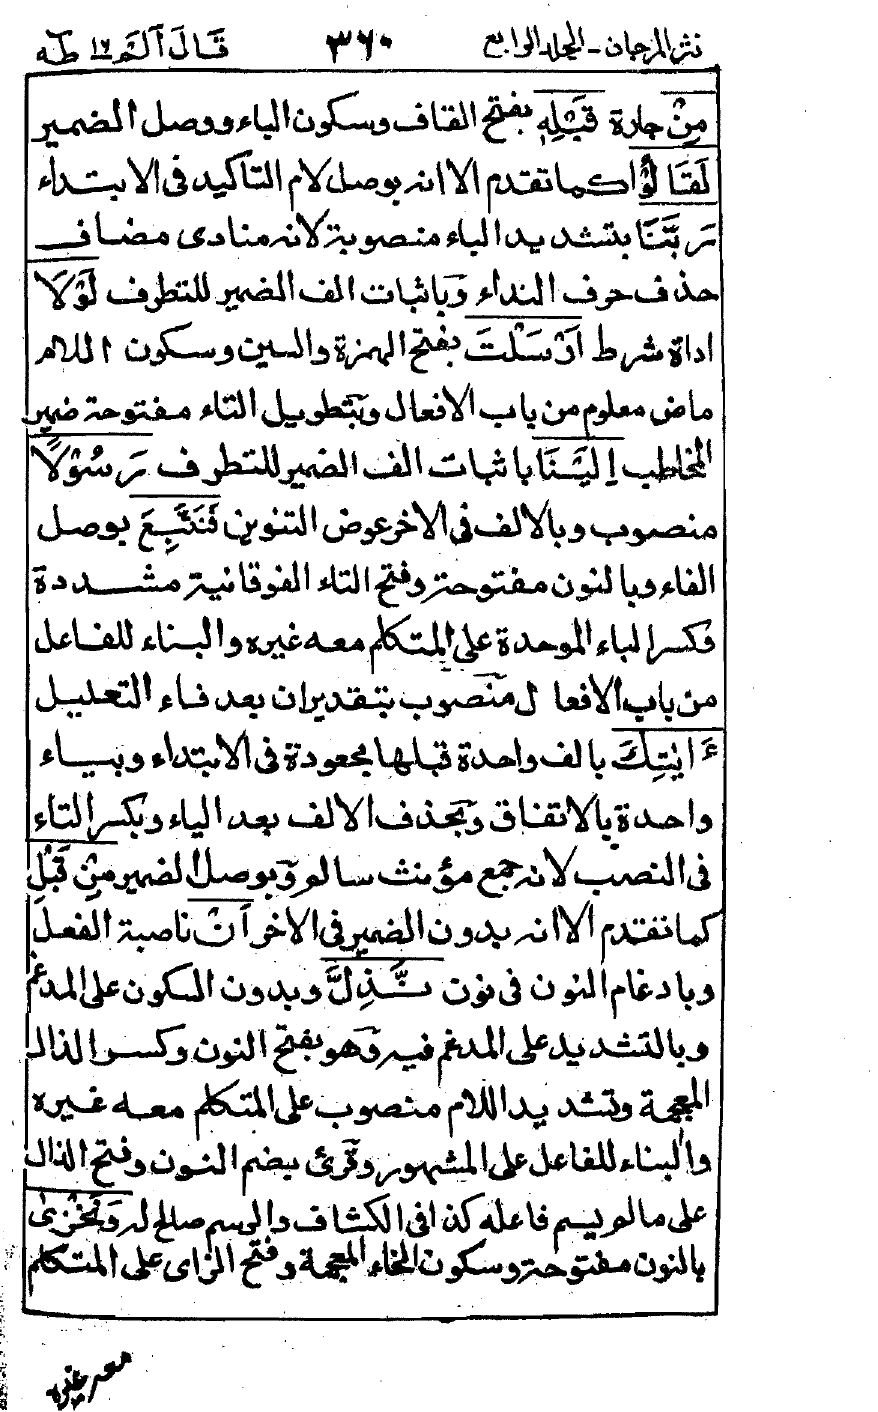 نثر المرجان - المجلد الرابع ٣٦٠ قَالَ اَلَمْ ١٦ طٰهٰ
مِنْ جارة قَبْلِهٖ بفتح القاف وسكون الباء ووصل الضمير
لَقَالُوْا كما تقدم الا انه بوصل لام التاكيد فى الابتداء
رَبَّنَا بتشديد الباء منصوبة لانه منادى مضاف
حذف حرف النداء وباثبات الف الضمير للتطرف لَوْلَا
اداة شرط اَرْسَلْتَ بفتح الهمزة والسين وسكون اللام
ماض معلوم من باب الافعال وبتطويل التاء مفتوحة ضمير
المخاطب اِلَيْنَا باثبات الف الضمير للتطرف رَسُوْلًا
منصوب وبالالف فى الاخر عوض التنوين فَنَتَّبِعَ بوصل
الفاء وبالنون مفتوحة وفتح التاء الفوقانية مشددة
وكسر الباء الموحدة على المتكلم معه غيره والبناء للفاعل
من باب الافعال منصوب بتقدير ان بعد فاء التعليل
ءَايٰتِكَ بالف واحدة قبلها مجعودة فى الابتداء وبياء
واحدة بالاتفاق وبحذف الالف بعد الياء وبكسر التاء
فى النصب لانه جمع مؤنث سالم وبوصل الضمير مِنْ قَبْلِ
كما تقدم الا انه بدون الضمير فى الاخر اَنْ ناصبة الفعل
وبادغام النون فى نون نَّذِلَّ وبدون السكون على المدغم
وبالتشديد على المدغم فيه وهو بفتح النون وكسر الذال
المعجمة وتشديد اللام منصوب على المتكلم معه غيره
والبناء للفاعل على المشهور وقرئ بضم النون وفتح الذال
على ما لم يسم فاعله كذا فى الكشاف والرسم صالح له وَنَخْزٰى
بالنون مفتوحة وسكون الخاء المعجمة وفتح الزاى على المتكلم
معه غيره